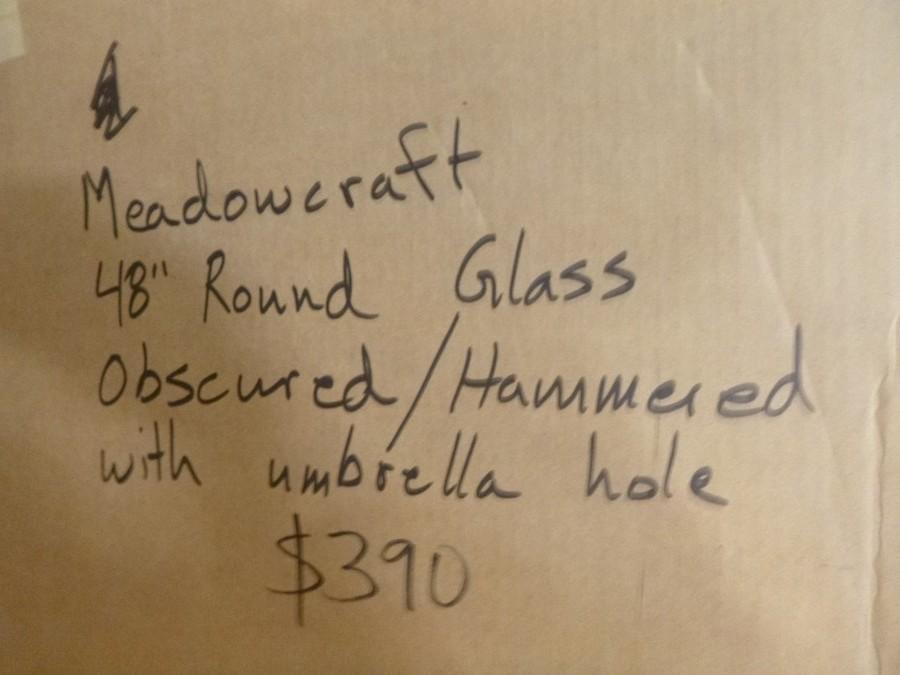 Meadowcraft
48" Round Glass
Obscured/Hammered
with umbrella hole
$390